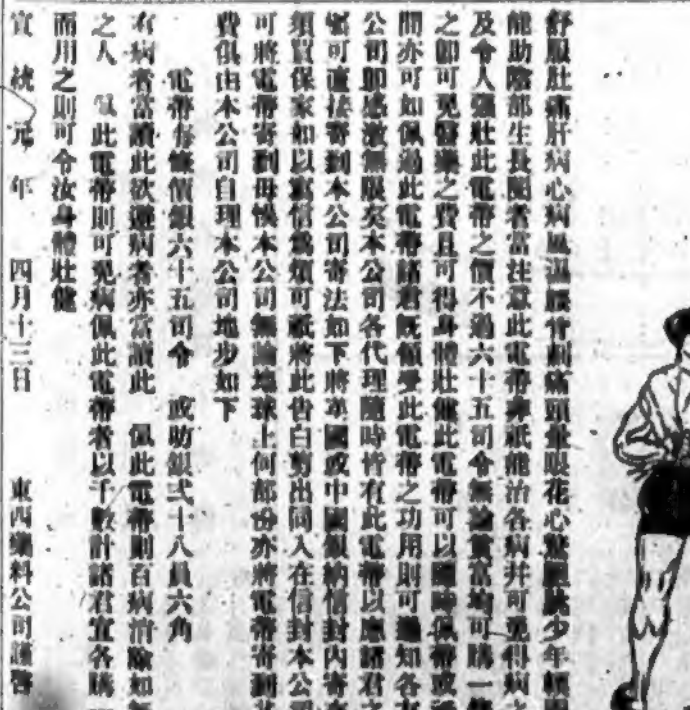 舒服肚痛肝病心病風濕腰骨刺痛頭暈眼花心驚膽跳少年
能助陰部生長閱者當注意此電帶非祇能治各病并可免得病之
及令人强壯此電帶之價不過六十五司令無論貧富均可購一條
之卽可免醫藥之費且可得身體壯健此電帶可以隨時佩帶或
間亦可如佩過此電帶諸君旣領受此電帶之功用則可通知各
公司卽感激無限矣本公司各代理隨時皆有此電帶以應諸君之
可直接寄到本公司寄法如下將英國或中國銀納信封內寄
須買保家如以寫信爲煩可祇將此告白剪出同入在信封本公司
可將電帶寄到毋悞本公司無論地球上何部份亦將電帶寄到
費俱由本公司自理本公司地步如下
電帶每條價銀六十五司令 或助銀弍十八員六角
有病者當讀此欲避病者亦當讀此 佩此電帶則百病消除如
之人 佩此電帶則可免病佩此電帶者以千數計諸君宜各購
而用之則可令汝身體壯健
宣統元年 四月十三日 東西藥料公司謹啓